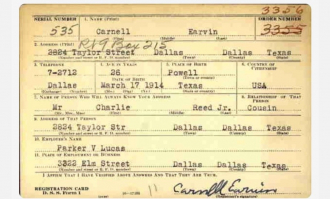 3356
SERIAL NUMBER 1. NAME (Print) ORDER NUMBER
535 Carnell Earvin 3355
R#9 Box 215
2. ADDRESS (Print)
2824 Taylor Street Dallas Dallas Texas
3. TELEPHONE 4. AGE IN YEARS 5. PLACE OF BIRTH 6. COUNTRY OF CITIZENSHIP
7-2712 26 Powell
DATE OF BIRTH
Dallas March 17 1914 Texas USA
7. NAME OF PERSON WHO WILL ALWAYS KNOW YOUR ADDRESS 8. RELATIONSHIP OF THAT PERSON
Mr Charlie Reed Jr. Cousin
9. ADDRESS OF THAT PERSON
2824 Taylor Str Dallas Dallas Texas
10. EMPLOYER'S NAME
Parker V Lucas
11. PLACE OF EMPLOYMENT OR BUSINESS
3322 Elm Street Dallas Dallas Texas
I AFFIRM THAT I HAVE VERIFIED ABOVE ANSWERS AND THAT THEY ARE TRUE.
REGISTRATION CARD
D. S. S. Form 1
11 Carnell Earvin